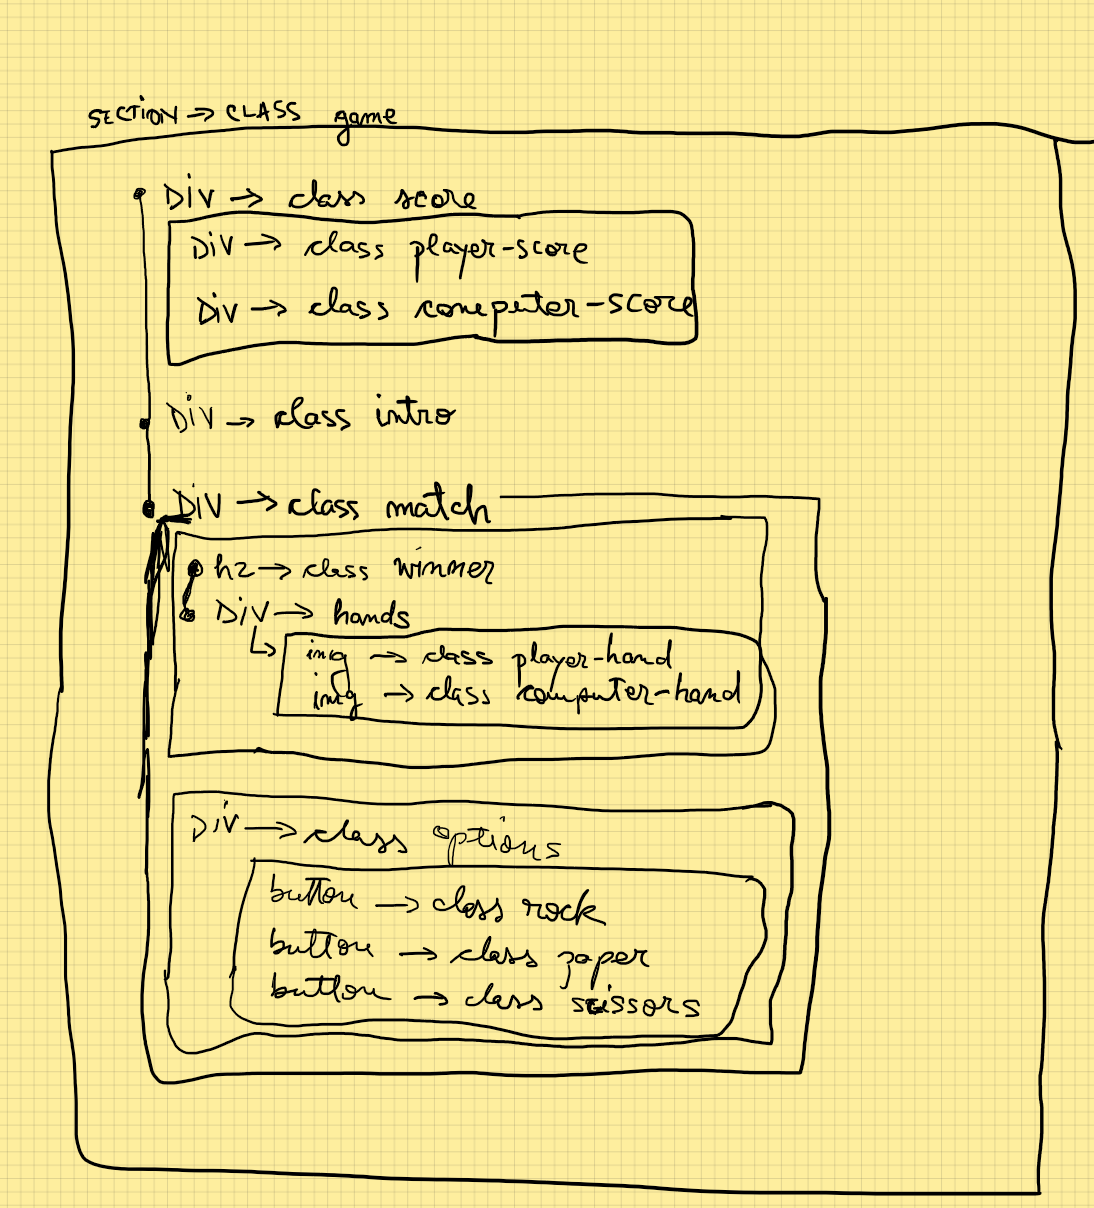 SECTION → CLASS game
Div → class score
Div → class player-score
Div → class computer-score
Div → class intro
Div → class match
h2 → class winner
Div → hands
img → class player-hand
img → class computer-hand
Div → class options
button → class rock
button → class paper
button → class scissors